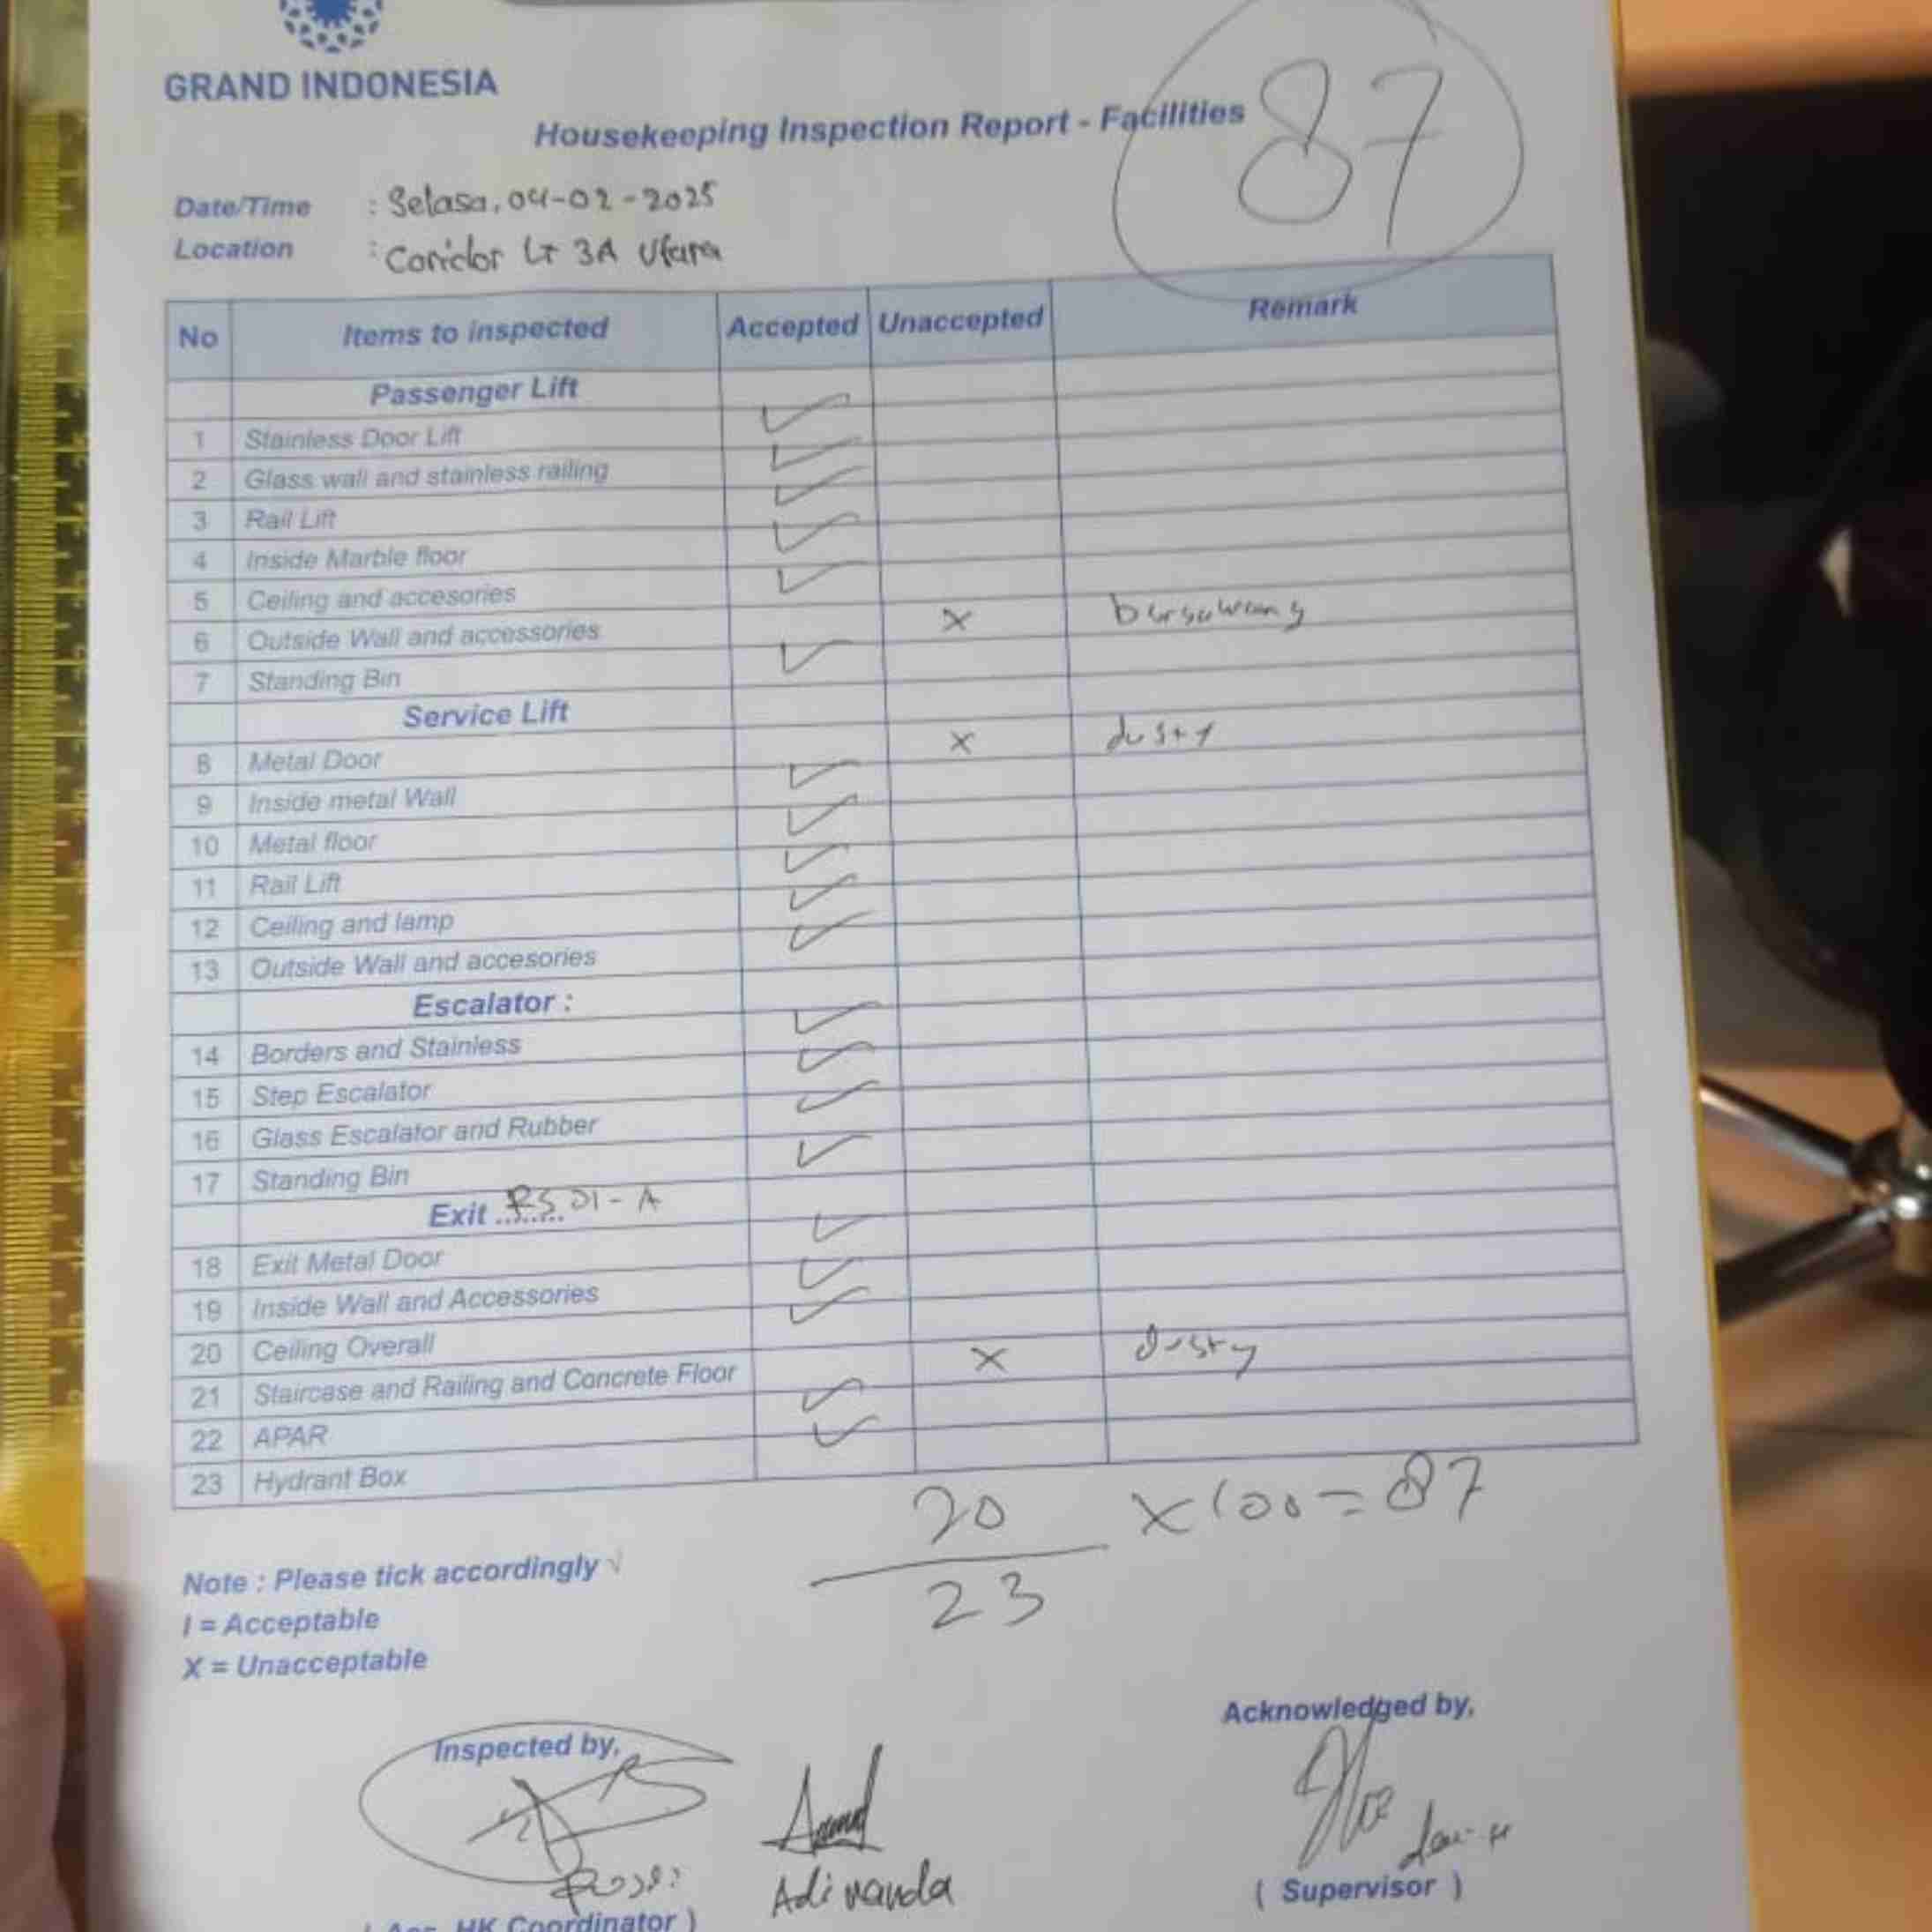 GRAND INDONESIA
Housekeeping Inspection Report - Facilities
87
Date/Time : Selasa, 04-02-2025
Location : Coridor LT 3A Utara
No Items to inspected Accepted Unaccepted Remark
Passenger Lift
1 Stainless Door Lift ✓
2 Glass wall and stainless railing ✓
3 Rail Lift ✓
4 Inside Marble floor ✓
5 Ceiling and accesories ✓
6 Outside Wall and accessories X bersawang
7 Standing Bin ✓
Service Lift
8 Metal Door X dusty
9 Inside metal Wall ✓
10 Metal floor ✓
11 Rail Lift ✓
12 Ceiling and lamp ✓
13 Outside Wall and accesories ✓
Escalator :
14 Borders and Stainless ✓
15 Step Escalator ✓
16 Glass Escalator and Rubber ✓
17 Standing Bin ✓
Exit ........ RS 01 - A
18 Exit Metal Door ✓
19 Inside Wall and Accessories ✓
20 Ceiling Overall ✓
21 Staircase and Railing and Concrete Floor X dusty
22 APAR ✓
23 Hydrant Box ✓
20
23
x 100 = 87
Note : Please tick accordingly √
I = Acceptable
X = Unacceptable
Inspected by,
Acknowledged by,
Adinanda
HK Coordinator )
( Supervisor )